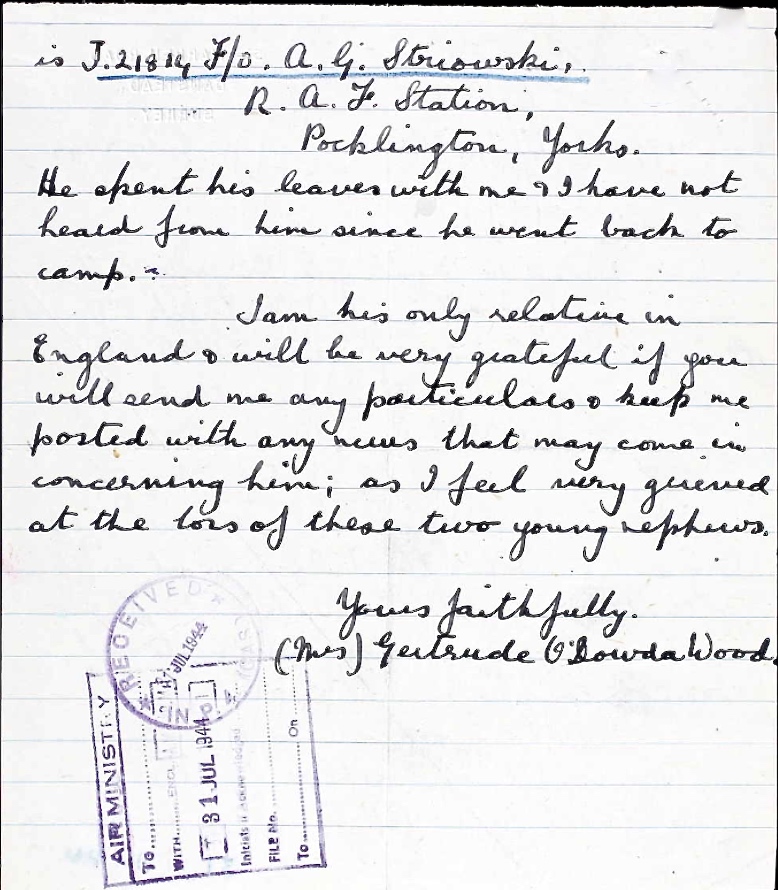 is J.21814 F/O. A. G. Striowski,
R. A. F. Station,
Pocklington, Yorks.
He spent his leaves with me & I have not
heard from him since he went back to
camp.-
I am his only relative in
England & will be very grateful if you
will send me any particulars & keep me
posted with any news that may come in
concerning him; as I feel very grieved
at the loss of these two young nephews.
Yours faithfully.
(Mrs) Gertrude O'Dowda Wood.
RECEIVED
JUL 1944
AIR MINISTRY
To
WITH ENCL
31 JUL 1944
FILE No.
To On